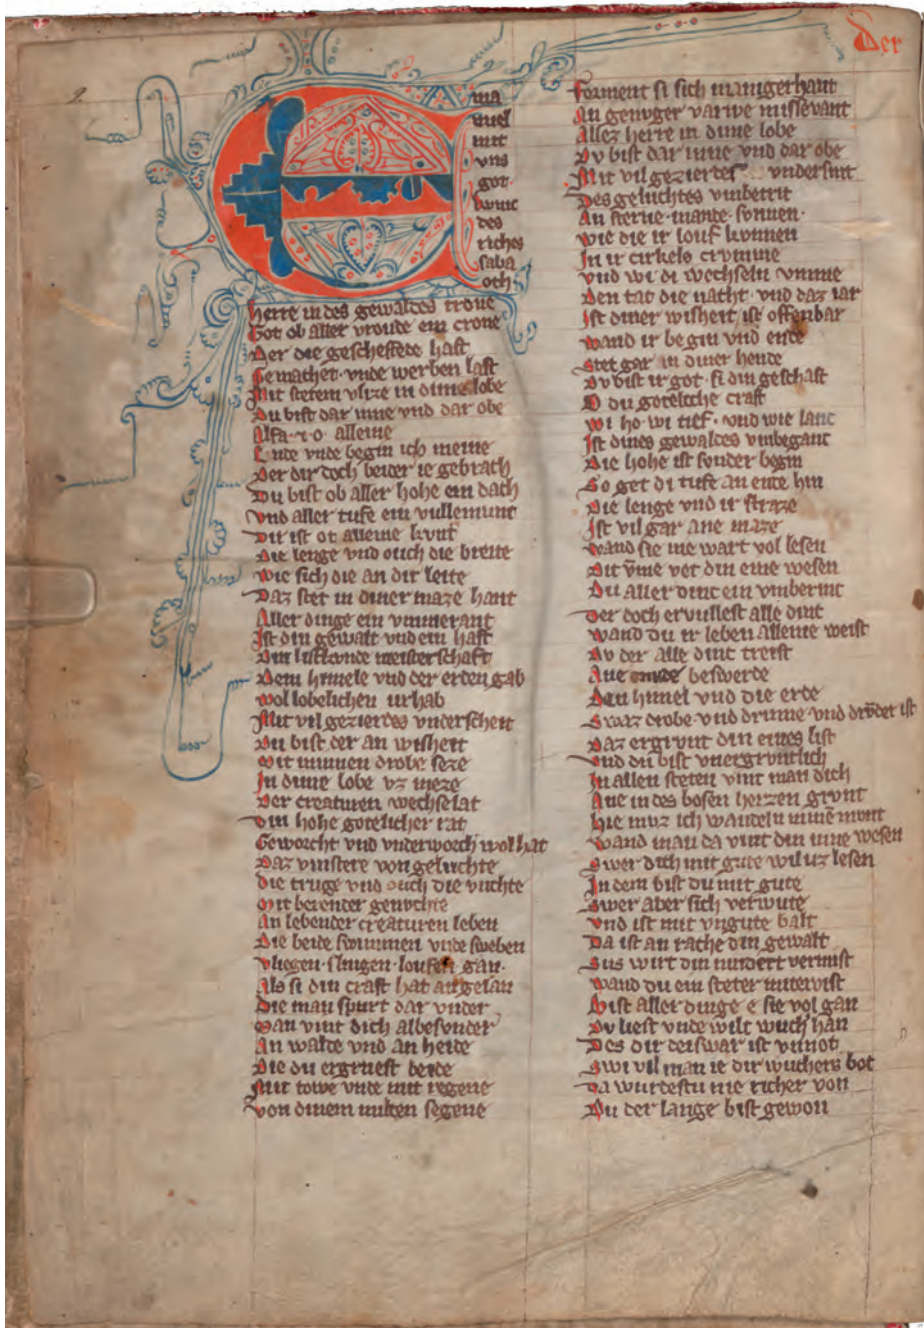 Der
9.
E
ma
nuel
mit
vns
got.
kvnic
des
riches
saba
oth
Herre in des gewaldes trone
Got ob aller vroude ein crone
Der die gescheffede hast
Gemachet. vnde werben last
Mit stetem vlize in dime lobe
Du bist dar inne vnd dar obe
Alfa. τ o. alleine
Ende vnde begin ich meine
Der dir doch beider ie gebrach
Du bist ob aller hohe ein dach
Vnd aller tufe ein vullemunt
Dir ist ot alleine kvnt
Die lenge vnd ouch die breite
Wie sich die an dir leite
Daz stet in diner maze hant
Aller dinge ein vmmerant
Ist din gewalt vnd ein haft
Din listkvnde meisterschaft
Dem himele vnd der erden gab
Wol lobelichen urhab
Mit vil gezierdes vnderscheit
Du bist der an wisheit
Mit minnen drobe seze
In dime lobe vz meze
Der creaturen wechselat
Din hohe gotelicher rat
Geworcht vnd vnderworch wol hat
Daz vinstere von geluchte
Die truge vnd ouch die vuchte
Mit berender genuchte
An lebender creaturen leben
Die beide swimmen vnde sweben
Vliegen. slingen. loufen gan.
Als si din craft hat an gelan
Die man spurt dar vnder
Man vint dich albesvnder
An walde vnd an heide
Die du ergruest beide
Mit towe vnde mit regene
Von dinem milten segene
Feiment si sich manigerhant
An genvger varwe missevant
Allez herre in dime lobe
Dv bist dar inne vnd dar obe
Mit vil gezierdes vndersnit
Des geluchtes vmbetrit
An sterne. mande. sonnen.
Wie die ir louf kvnnen
In ir cirkels crvmme
Vnd wi di wechseln vmme
Den tac die nacht. vnd daz iar
Ist diner wisheit ie offenbar
Wand ir begin vnd ende
Stet gar in diner hende
Dv bist ir got. si din geschaft
O du goteliche craft
Wi ho. wi tief. vnd wie lanc
Ist dines gewaldes vmbeganc
Die hohe ist sonder begin
So get di tufe an ende hin
Die lenge vnd ir straze
Ist vil gar ane maze
Wand sie nie wart vol lesen
Dit vm̄e vet din eine wesen
Du aller dinc ein vmberinc
Der doch ervullest alle dinc
Wand du ir leben alleine weist
Dv der alle dinc treist
Ane beswerde
Den himel vnd die erde
Swaz drobe. vnd drinne vnd drv̄der ist
Daz ergrvnt din eines list
Vnd du bist vnergrvntlich
In allen steten vint man dich
Ane in des bosen herzen grvnt
Hie mvz ich wandeln minē mvnt
Wand man da vint din inne wesen
Swer dich mit gute wil uz lesen
In dem bist du mit gute
Swer aber sich verwute
Vnd ist mit vngute balt
Da ist an rache din gewalt
Sus wirt din nindert vermist
Wand du ein steter mitewist
Bist aller dinge e sie vol gan
Dv liest vnde wilt wuch' han
Des dir deiswar ist vnnot
Swi vil man ie dir wuchers bot
Da wurdestu nie richer von
Du der lange bist gewon